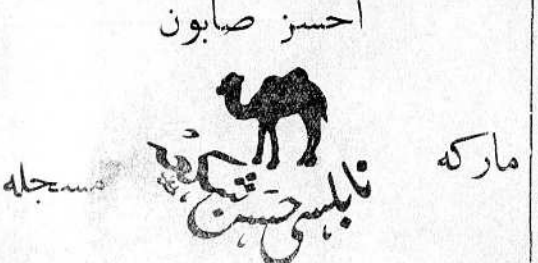 احسن صابون
ماركه
نابلسي حسن شكري
مسجله